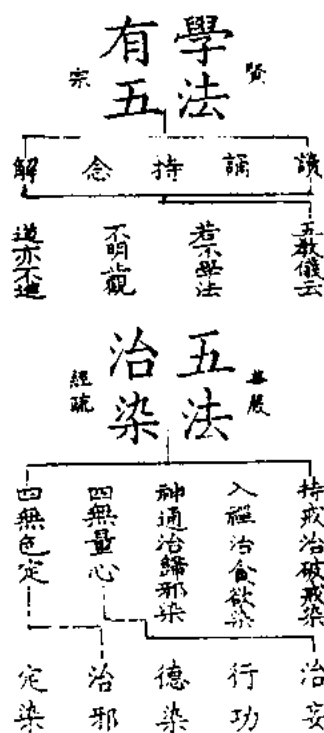 賢宗
學法
有五
讀
誦
持
念
解
五教儀云
若不學法
不明觀
道亦不進
華嚴
經疏
五法
治染
持戒治破戒染
入禪治貪欲染
神通治歸邪染
四無量心
四無色定
治妄
行功
德染
治邪
定染